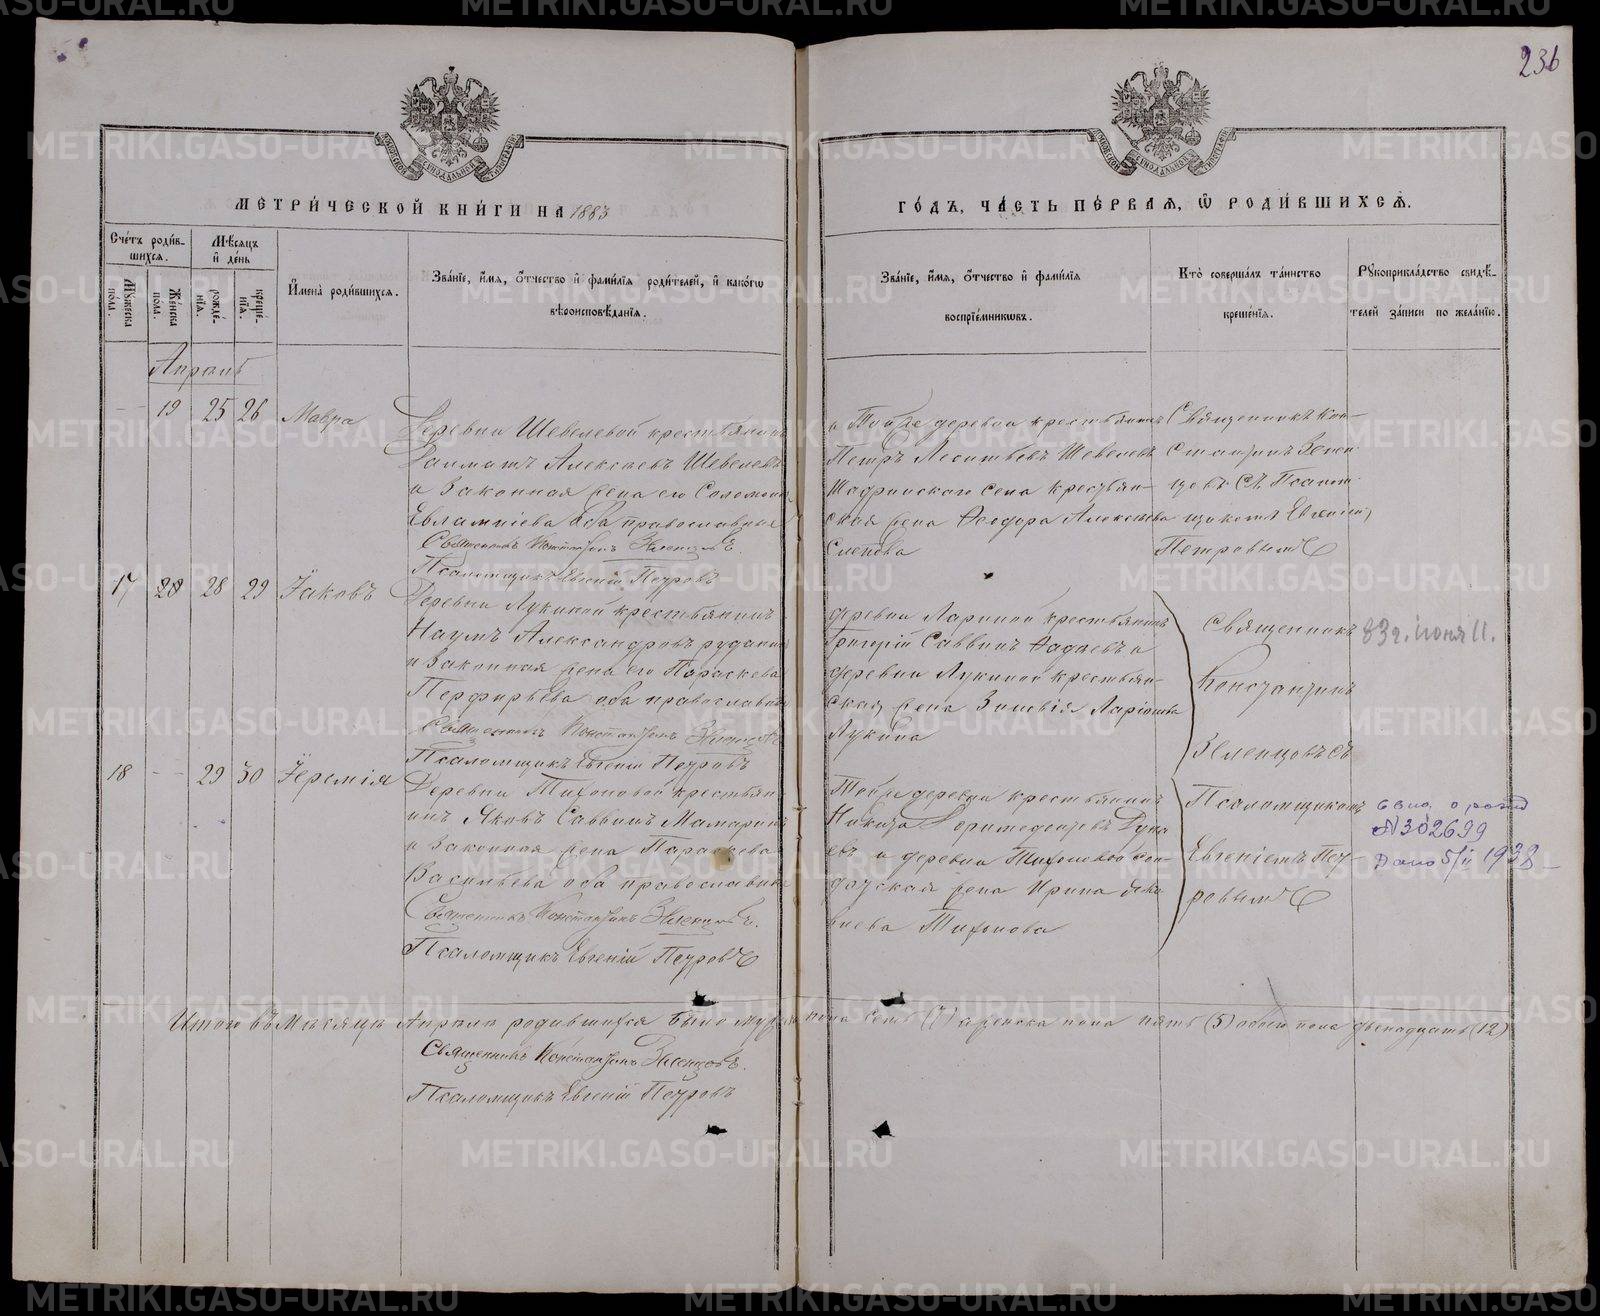 236
МЕТРИ́ЧЕСКОЙ КНИ́ГИ НА 1883
ГО́ДЪ, ЧА́СТЬ ПЕ́РВАЯ, Ѿ РОДИ́ВШИХСЯ.
Сче́тъ роди́в-
шихся.
Мѣ́сяцъ
и де́нь
Мꙋжеска по́ла.
Же́нска по́ла.
рожде́-
нїя.
креще́-
нїя.
И҆мена̀ роди́вшихся.
Зва́нїе, и҆́мя, ѻ҆́тчество и҆ фами́лїя роди́телей, и҆ како́гѡ
вѣроисповѣ́данїя.
Зва́нїе, и҆́мя, ѻ҆́тчество и҆ фами́лїя
воспрїе́мникѡвъ.
Кто̀ соверша́лъ та́инство
креще́нїя.
Рꙋкоприкла́дство свидѣ́-
телей за́писи по жела́нїю.
Апрѣль
19 25 26 Мавра
Деревни Шевелевой крестьянинъ
Алексѣевъ Шевелевъ
и законная жена его Соломонія
Евлампіева оба православные
Священникъ Константинъ Зеленцовъ.
Псаломщикъ Евгеній Петровъ
деревни крестьянинъ
Петръ Леонтьевъ Шевелевъ
села крестьян-
ская жена Ѳеодора Алексѣева
Слепова
Священникъ Кон-
стантинъ Зелен-
цовъ съ Псалом-
щикомъ Евгеніемъ
Петровымъ
17 28 29 Іаковъ
Деревни Лукиной крестьянинъ
Наумъ Александровъ
и законная жена его Параскева
Перфирьева оба православные
Священникъ Константинъ Зеленцовъ
Псаломщикъ Евгеній Петровъ
деревни Лариной крестьянинъ
Григорій Саввинъ Ѳадѣевъ и
деревни Лукиной крестьян-
ская жена Зиновія Ларіонова
Лукина
Священникъ
Константинъ
Зеленцовъ съ
83 г. іюня 11.
18 -- 29 30 Іеремія
Деревни Тихоновой крестьян-
инъ Яковъ Саввинъ Мамаринъ
и законная жена Параскева
Васильева оба православные
Священникъ Константинъ Зеленцовъ.
Псаломщикъ Евгеній Петровъ
Тойже деревни крестьянинъ
Никита
евъ и деревни Тихоновой сол-
датская жена Ирина
Тихонова
Псаломщикомъ
Евгеніемъ Пет-
ровымъ
N 302699
Дано 5/II 1938
Итого въ Мѣсяцѣ Апрѣлѣ родившихся было мужска пола семь (7) а женска пола пять (5) обоего пола двенадцать (12)
Священникъ Константинъ Зеленцовъ.
Псаломщикъ Евгеній Петровъ
METRIKI.GASO-URAL.RU